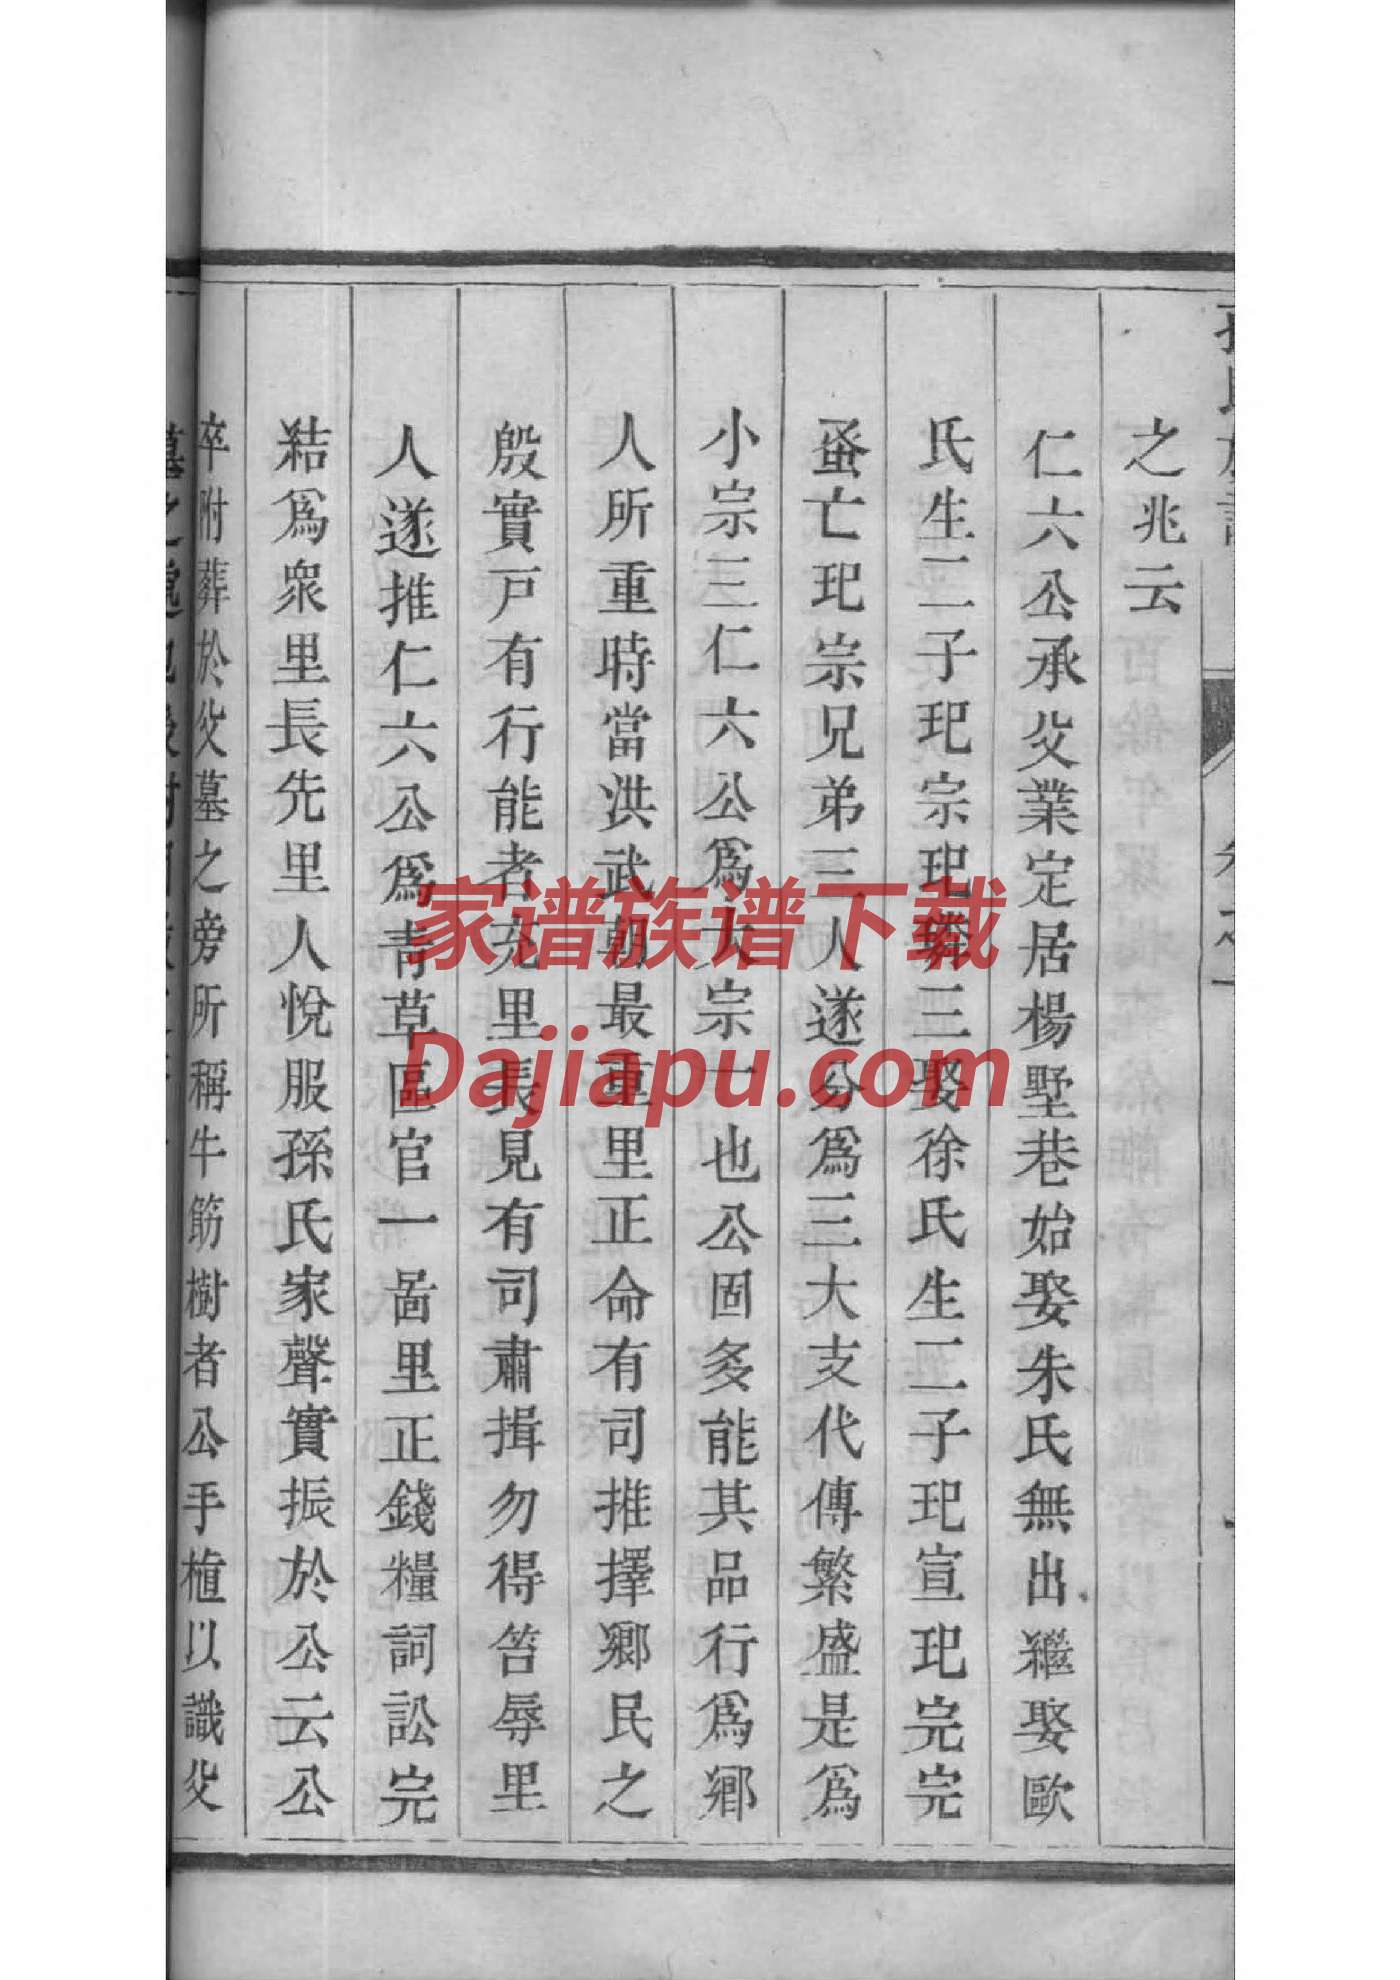 之兆云
仁六公承父業定居楊墅巷始娶朱氏無出繼娶歐
氏生二子玘宗玘鄰三娶徐氏生二子玘宣玘完完
蚤亡玘宗兄弟三人遂分為三大支代傳繁盛是為
小宗三仁六公為大宗一也公固多能其品行為鄉
人所重時當洪武朝最重里正命有司推擇鄉民之
殷實戸有行能者充里長見有司肅揖勿得笞辱里
人遂推仁六公為青草區官一啚里正錢糧詞訟完
結為衆里長先里人悅服孫氏家聲實振於公云公
卒附葬於父墓之旁所稱牛筋樹者公手植以識父
家谱族谱下载
Dajiapu.com